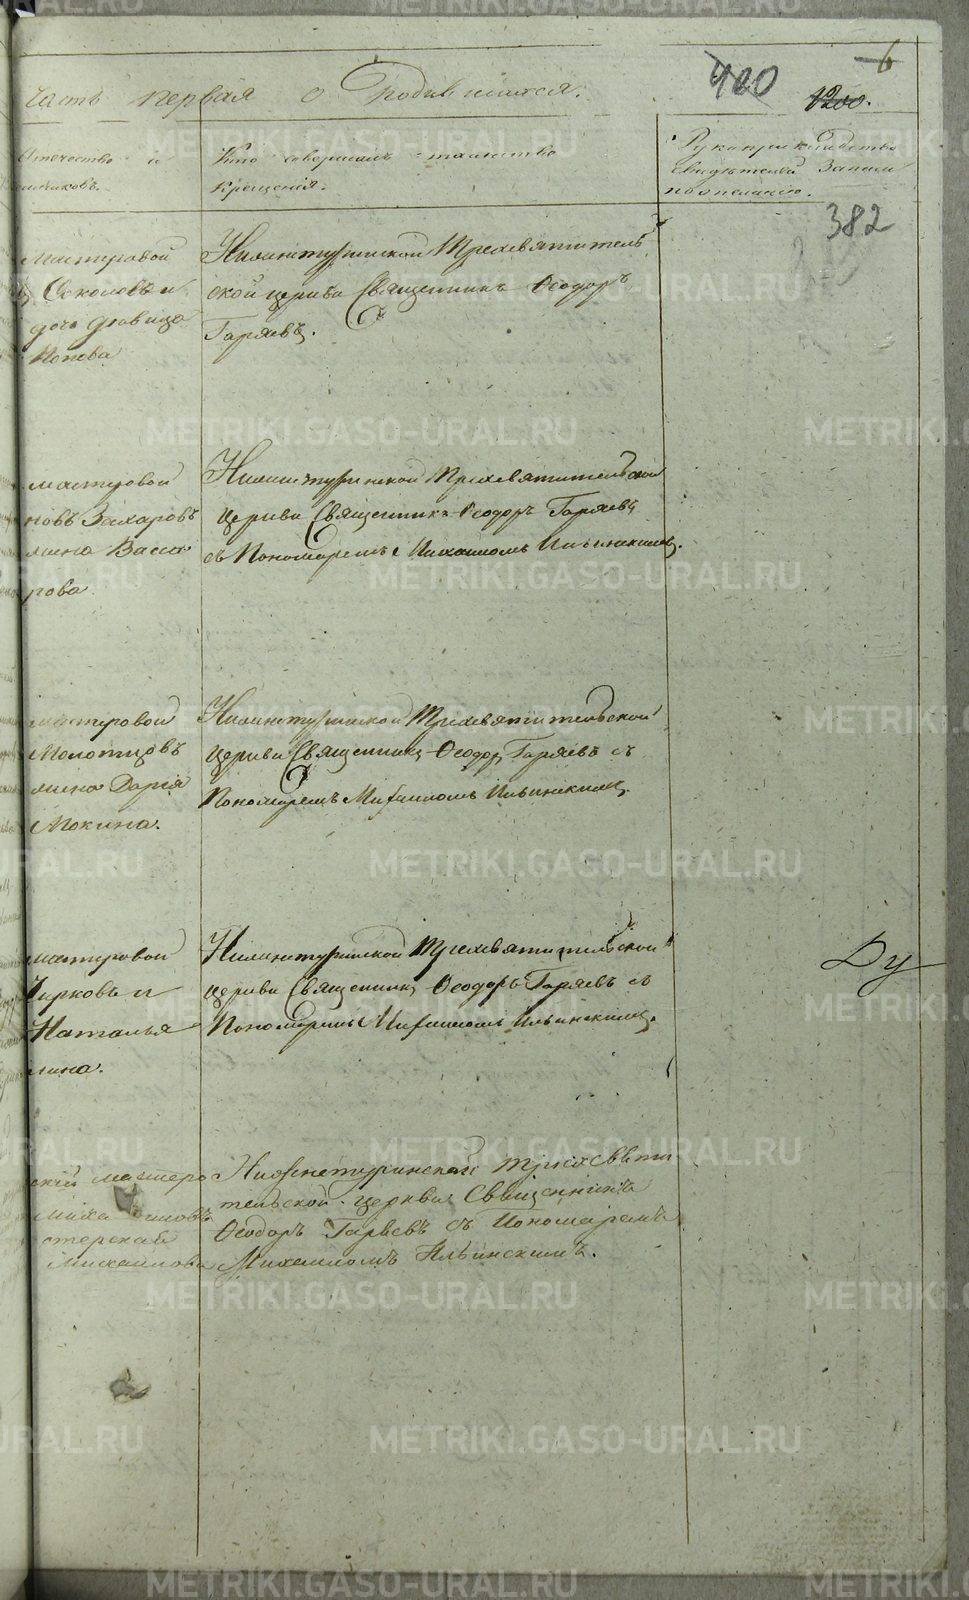 6
400
1200.
Часть первая о Родившихся.
Отечество и
Кто совершалъ таинство
Крещенія.
Рукоприкладство
свидѣтелей Записи
по желанію.
382
мастеровой
Соколовъ и
дочь дѣвица
Попова
Нижнетуринской Трехсвятитель
ской церкви Священникъ Ѳеодоръ
Гаряевъ.
мастеровой
новъ Захаровъ
рова
Нижнетуринской Трехсвятительской
церкви Священникъ Ѳеодоръ Гаряевъ
съ Пономаремъ Михаиломъ Ильинскимъ.
мастеровой
Молотцовъ
мина Дарія
Мокина.
Нижнетуринской Трехсвятительской
церкви Священникъ Ѳеодоръ Гаряевъ съ
Пономаремъ Михаиломъ Ильинскимъ.
мастеровой
Чирковъ и
Наталья
лина.
Нижнетуринской Трехсвятительской
церкви Священникъ Ѳеодоръ Гаряевъ съ
Пономаремъ Михаиломъ Ильинскимъ.
Ду
скій мастеро
Михайлова
Нижнетуринской Трехсвяти
тельской церкви Священникъ
Ѳеодоръ Гаряевъ съ Пономаремъ
Михаиломъ Ильинскимъ.
METRIKI.GASO-URAL.RU